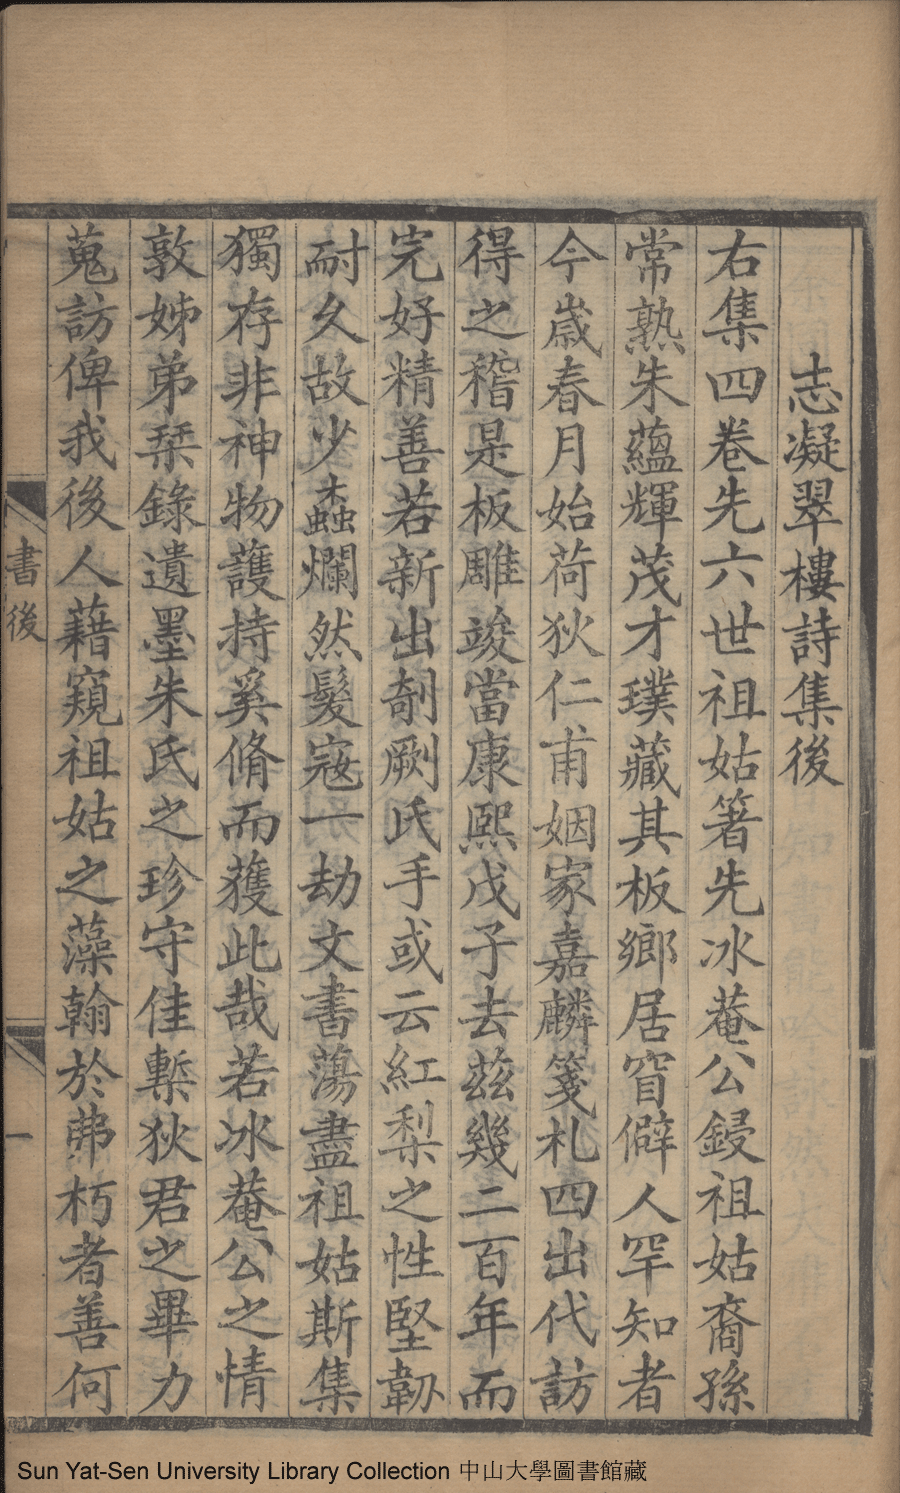 志凝翠樓詩集後
右集四卷先六世祖姑箸先冰菴公鋟祖姑裔孫
常熟朱蘊輝茂才璞藏其板鄉居窅僻人罕知者
今歲春月始荷狄仁甫姻家嘉麟箋札四出代訪
得之稽是板雕竣當康熙戊子去茲幾二百年而
完好精善若新出剞劂氏手或云紅梨之性堅韌
耐久故少蟲爛然髮寇一劫文書蕩盡祖姑斯集
獨存非神物護持奚脩而獲此哉若冰菴公之情
敦姊弟琹錄遺墨朱氏之珍守佳槧狄君之畢力
蒐訪俾我後人藉窺祖姑之藻翰於弗朽者善何
書後
一
Sun Yat-Sen University Library Collection 中山大學圖書館藏